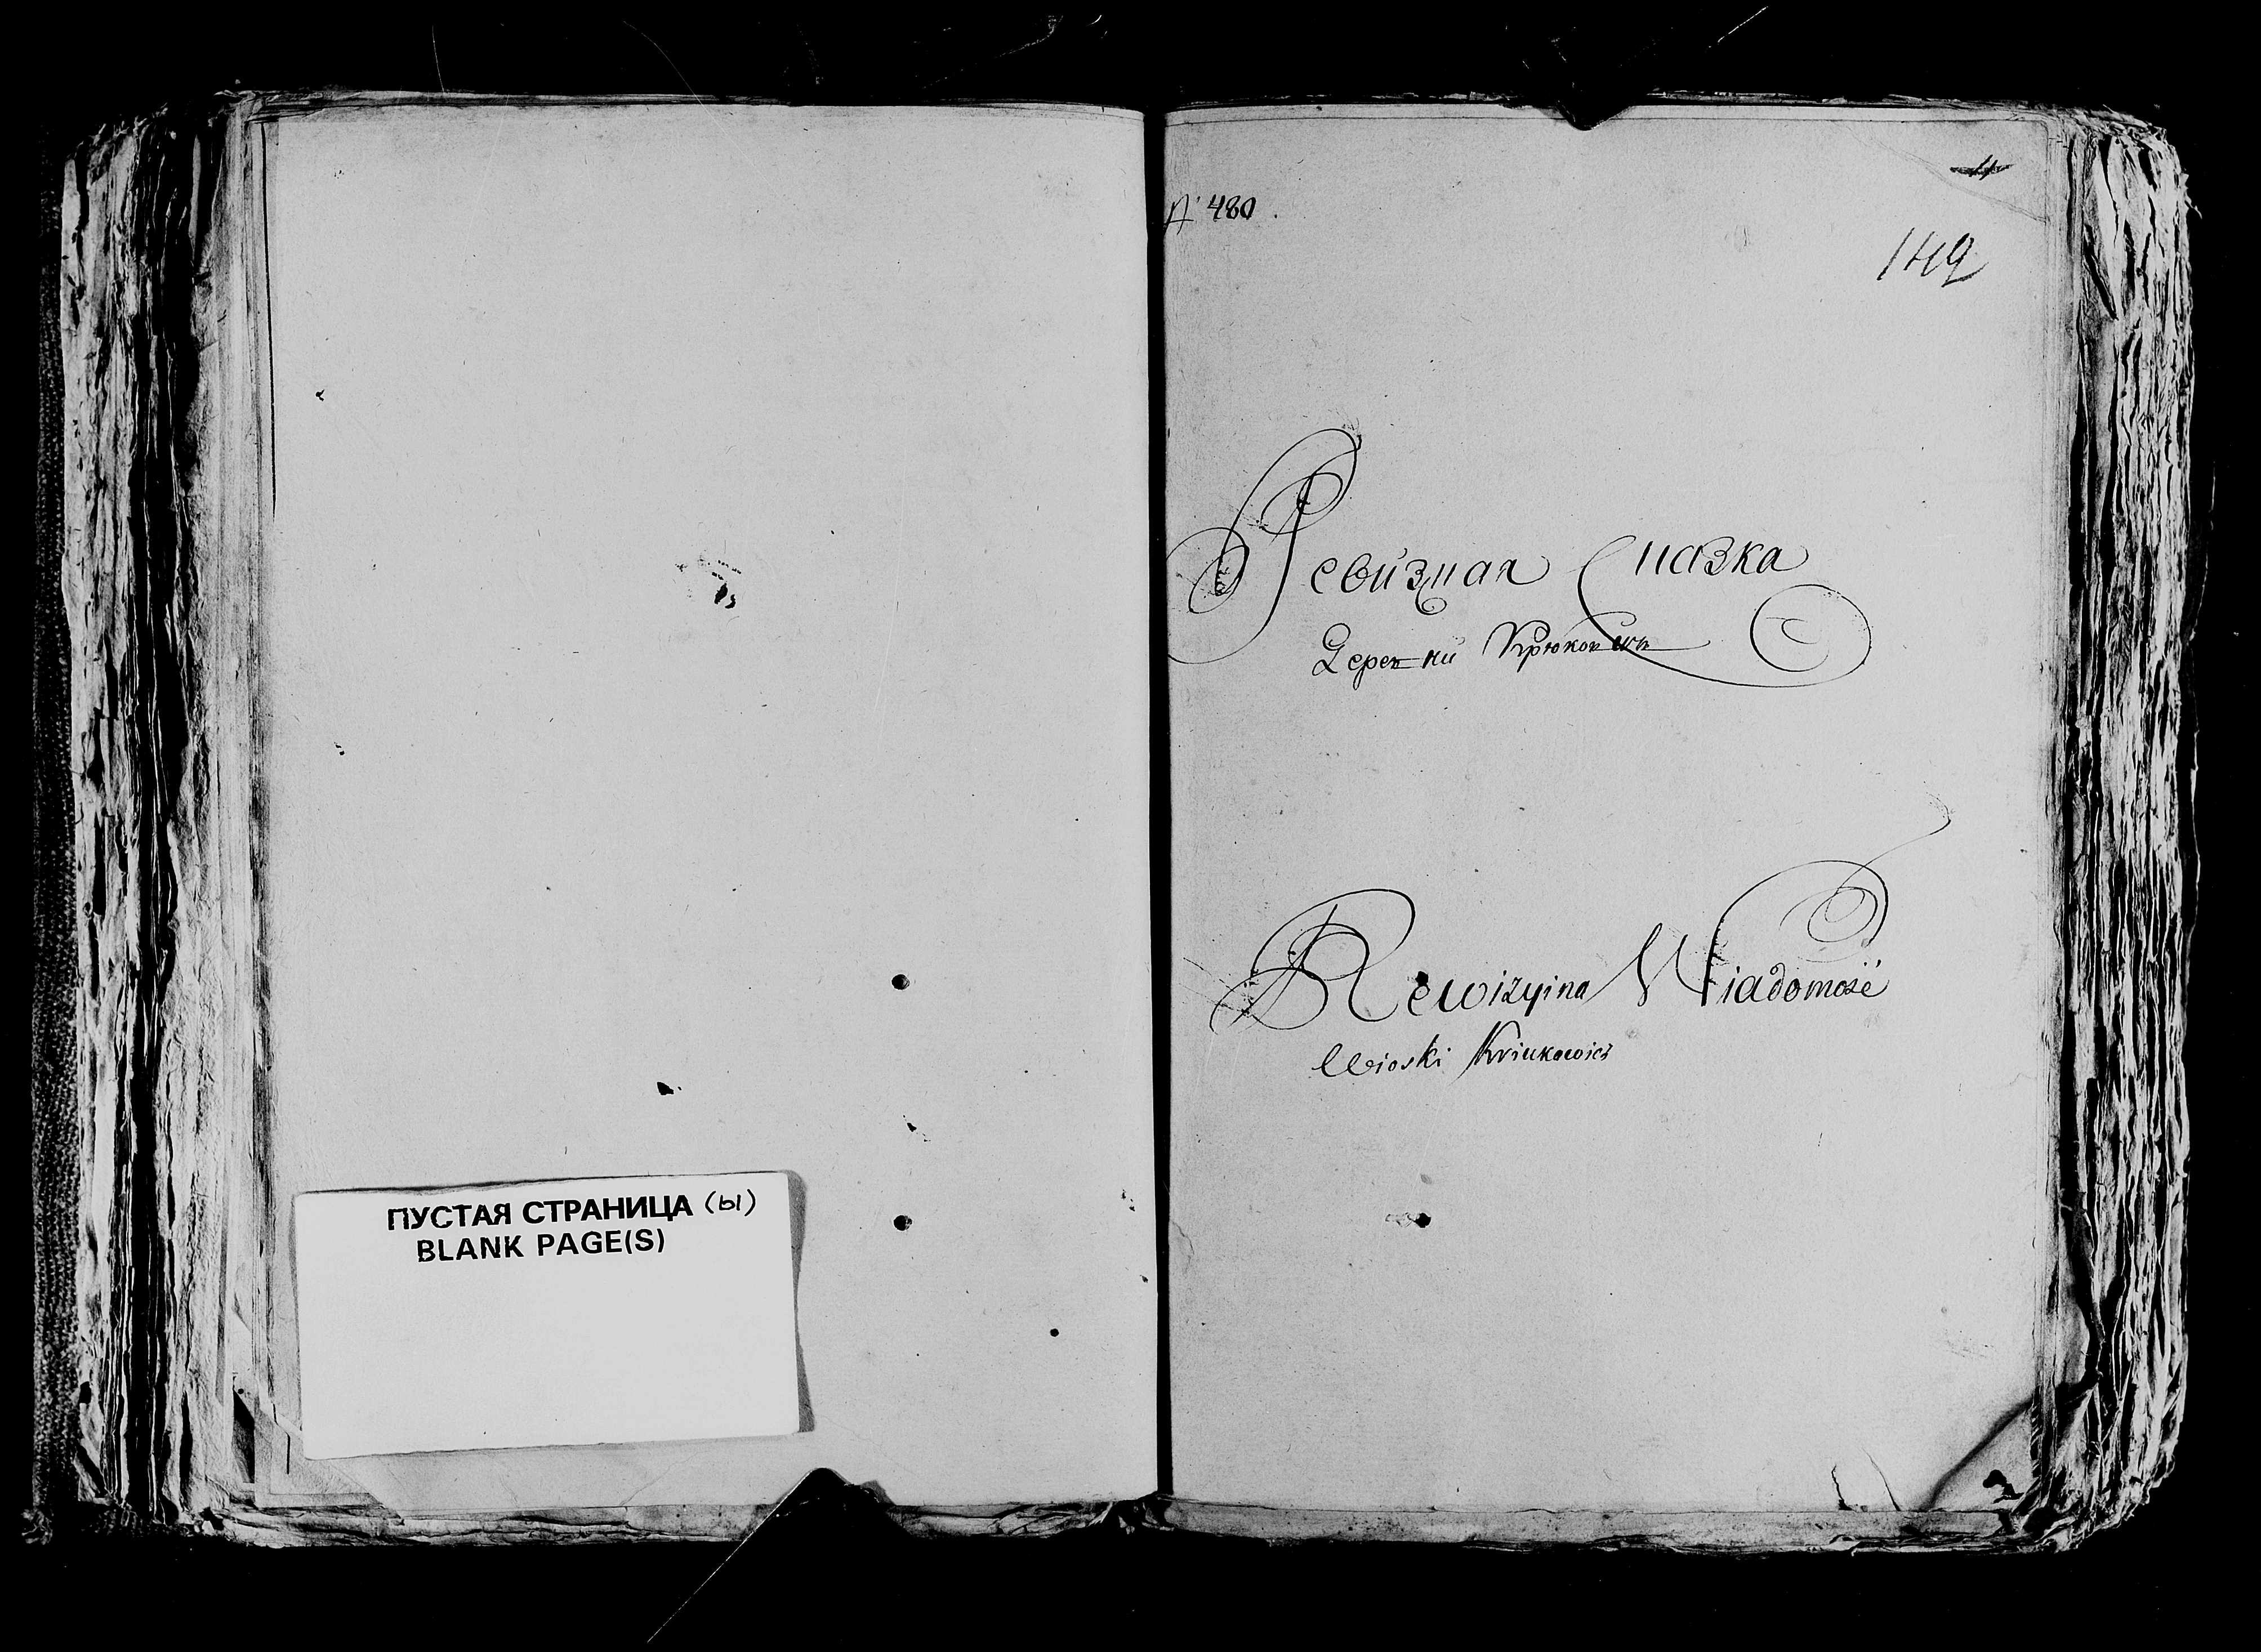 ПУСТАЯ СТРАНИЦА (ы)
BLANK PAGE(S)
№ 480.
4
149
Ревизная Сказка
Деревни Крюковичь
Rewizyina Wiadomość
Wioski Kriukowicz